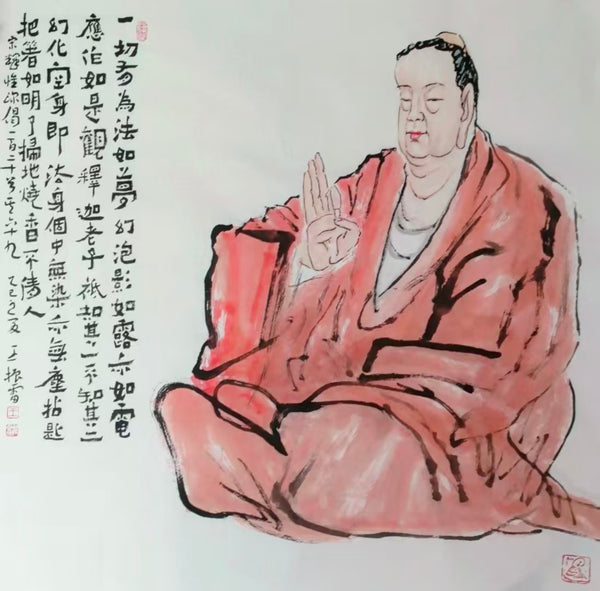 一切有為法如夢幻泡影如露亦如電
應作如是觀釋迦老子祇知其一不知其二
幻化空身即法身個中無染亦無塵拈匙
把箸如明了掃地燒香不倩人
宋釋偈一百二十首其六十九
乙巳之夏 王振